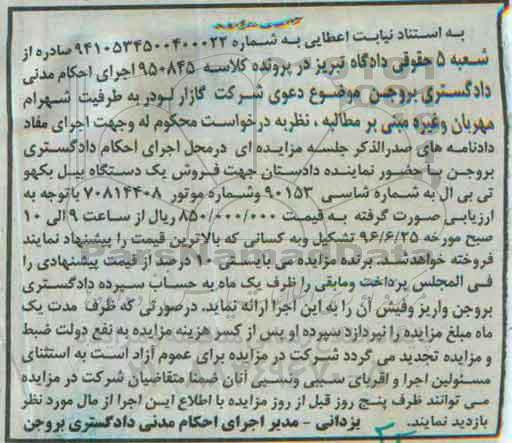 به استناد نیابت اعطایی به شماره ۹۴۱۰۵۳۴۵۰۰۴۰۰۰۲۲ صادره از
شعبه ۵ حقوقی دادگاه تبریز در پرونده کلاسه ۹۵۰۸۴۵ اجرای احکام مدنی
دادگستری بروجن موضوع دعوی شرکت گازار پودر به طرفیت شهرام
مهربان وغیره مبنی بر مطالبه ، نظربه درخواست محکوم له وجهت اجرای مفاد
دادنامه های صدرالذکر جلسه مزایده ای درمحل اجرای احکام دادگستری
بروجن با حضور نماینده دادستان جهت فروش یک دستگاه بیل بکهو
تی بی ال به شماره شاسی ۹۰۱۵۳ وشماره موتور ۷۰۸۱۴۴۰۸ باتوجه به
ارزیابی صورت گرفته به قیمت ۸۵۰/۰۰۰/۰۰۰ ریال از ساعت ۹ الی ۱۰
صبح مورخه ۹۶/۶/۲۵ تشکیل وبه کسانی که بالاترین قیمت را پیشنهاد نمایند
فروخته خواهدشد. برنده مزایده می بایستی ۱۰ درصد از قیمت پیشنهادی را
فی المجلس پرداخت ومابقی را ظرف یک ماه به حساب سپرده دادگستری
بروجن واریز وفیش آن را به این اجرا ارائه نماید. درصورتی که ظرف مدت یک
ماه مبلغ مزایده را نپردازد سپرده او پس از کسر هزینه مزایده به نفع دولت ضبط
و مزایده تجدید می گردد شرکت در مزایده برای عموم آزاد است به استثنای
مسئولین اجرا و اقربای سببی ونسبی آنان ضمنا متقاضیان شرکت در مزایده
می توانند ظرف پنج روز قبل از روز مزایده با اطلاع این اجرا از مال مورد نظر
بازدید نمایند. یزدانی - مدیر اجرای احکام مدنی دادگستری بروجن